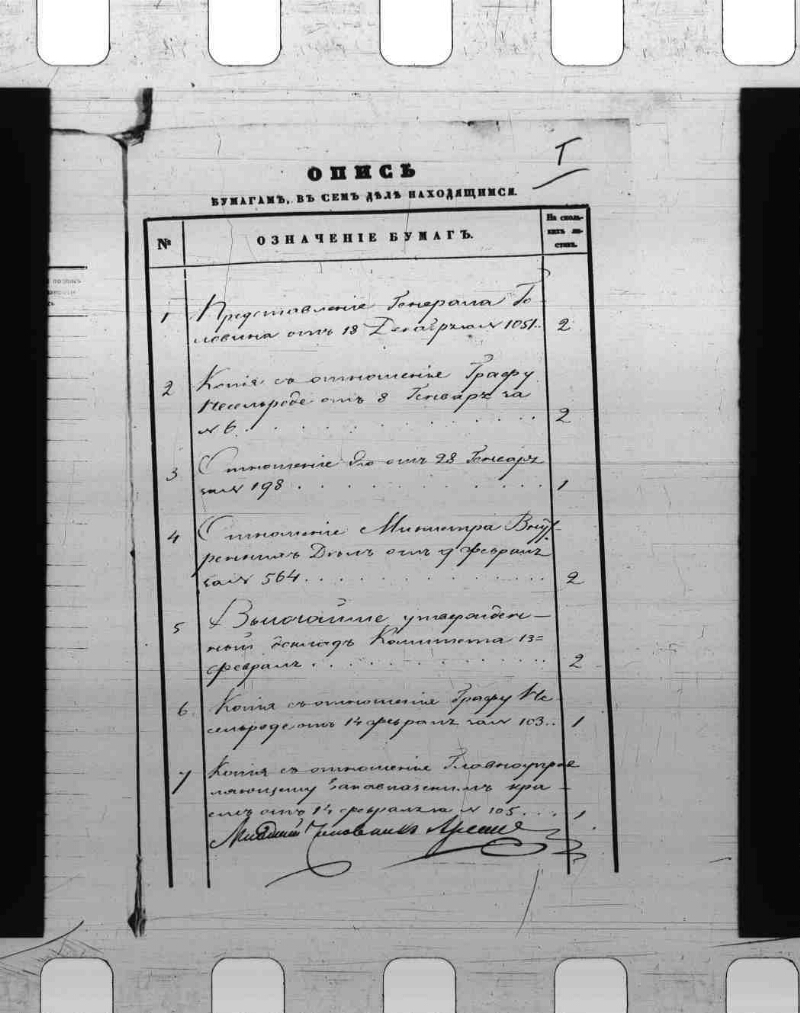 I
ОПИСЬ
БУМАГАМЪ, ВЪ СЕМЪ ДѢЛѢ НАХОДЯЩИМСЯ.
№ ОЗНАЧЕНІЕ БУМАГЪ. На сколь-
кихъ ли-
стахъ.
1 Представленіе Генерала Го-
ловина отъ 18 Декабря за № 1051. 2
2 Копія съ отношенія Графу
Несельроде отъ 8 Генваря за
№ 6. 2
3 Отношеніе его отъ 28 Генваря
за № 198 1
4 Отношеніе Министра Внут-
реннихъ Дѣлъ отъ 9 февраля
за № 564. 2
5 Высочайше утвержден-
ный докладъ Комитета 13=
февраля 2
6 Копія съ отношенія Графу Не-
сельроде отъ 14 февраля за № 103. 1
7 Копія съ отношенія Главноуправ
ляющему Закавказскимъ кра-
емъ отъ 14 февраля за № 105 1
Чиновникъ